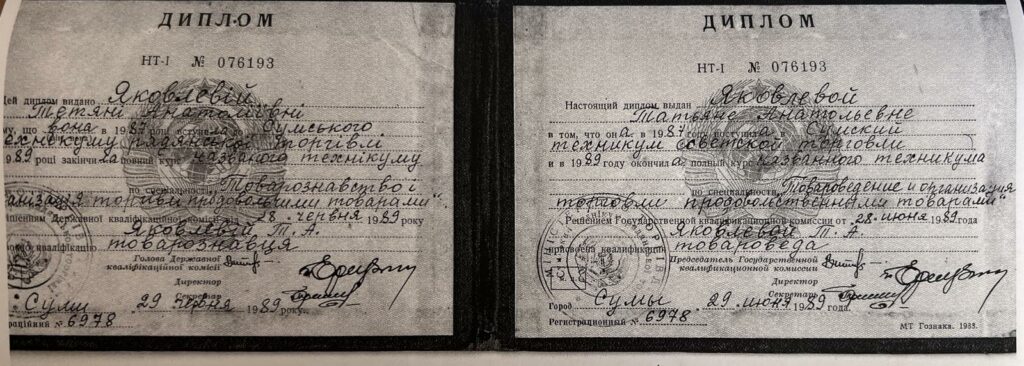 ДИПЛОМ
НТ-I № 076193
Цей диплом видано Яковлевій
Тетяні Анатоліївні
му, що вона в 1987 році вступила Сумського
технікуму радянської торгівлі
1989 році закінчила повний курс названого технікуму
по спеціальності „Товарознавство і
анізація торгівлі продовольчими товарами“
ішенням Державної кваліфікаційної комісії від 28 червня 1989 року
Яковлевій Т. А.
кваліфікацію товарознавця
Голова Державної
кваліфікаційної комісії
Директор
Секретар
Суми 29 червня 1989 року.
раційний № 6978
ДИПЛОМ
НТ-I № 076193
Настоящий диплом выдан Яковлевой
Татьяне Анатольевне
в том, что она в 1987 году поступила в Сумский
техникум советской торговли
и в 1989 году окончила полный курс названного техникума
по специальности „Товароведение и организация
торговли продовольственными товарами“
Решением Государственной квалификационной комиссии от 28 июня 1989 года
Яковлевой Т. А.
присвоена квалификация товароведа
Председатель Государственной
квалификационной комиссии
Директор
Секретарь
Город Сумы 29 июня 1989 года.
Регистрационный № 6978
МТ Гознака. 1988.